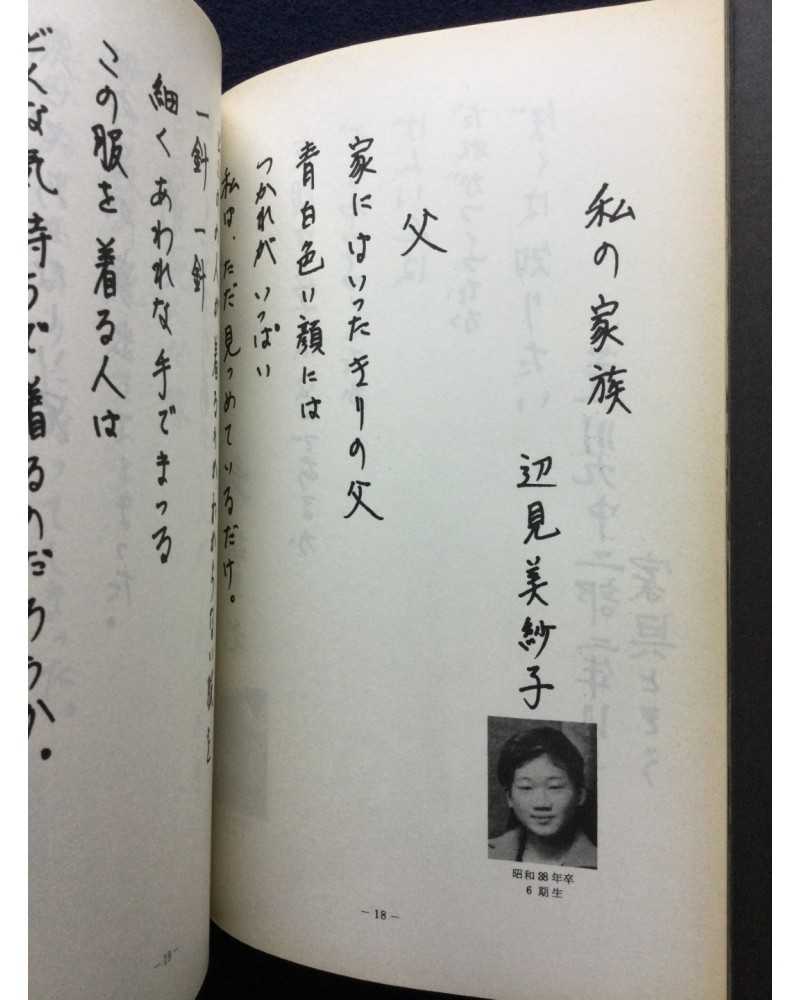 私の家族
辺見美紗子
昭和38年卒
6期生
父
家にはいったきりの父
青白色い顔には
つかれが いっぱい
私は、ただ見つめているだけ。
－18－
一針 一針
細くあわれな手でまつる
この服を着る人は
どんな気持ちで着るのだろうか。
－19－